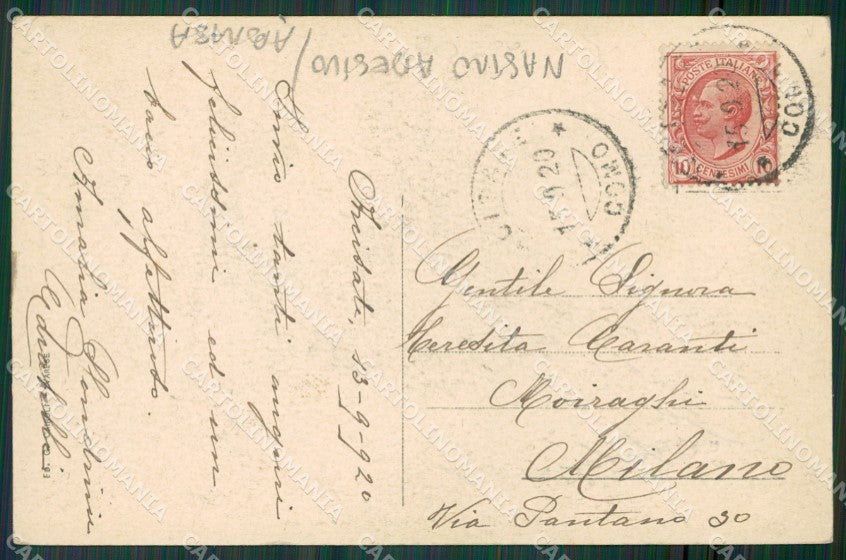 13-9-920
Invio tanti auguri
felicissimi ed un
bacio affettuoso.
Amalia
Gentile Signora
Teresita Caranti
Moiraghi
Milano
Via Pantano 30
POSTE ITALIANE
10 CENTESIMI 10
COMO
15 9 20
COMO
NASTRO ADESIVO/
ARONZA
CARTOLINOMANIA